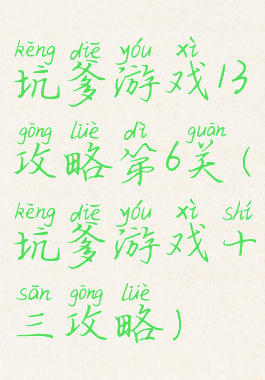 kēng diē yóu xì
坑爹游戏13
gōng lüè dì guān
攻略第6关(
kēng diē yóu xì shí
坑爹游戏十
sān gōng lüè
三攻略)